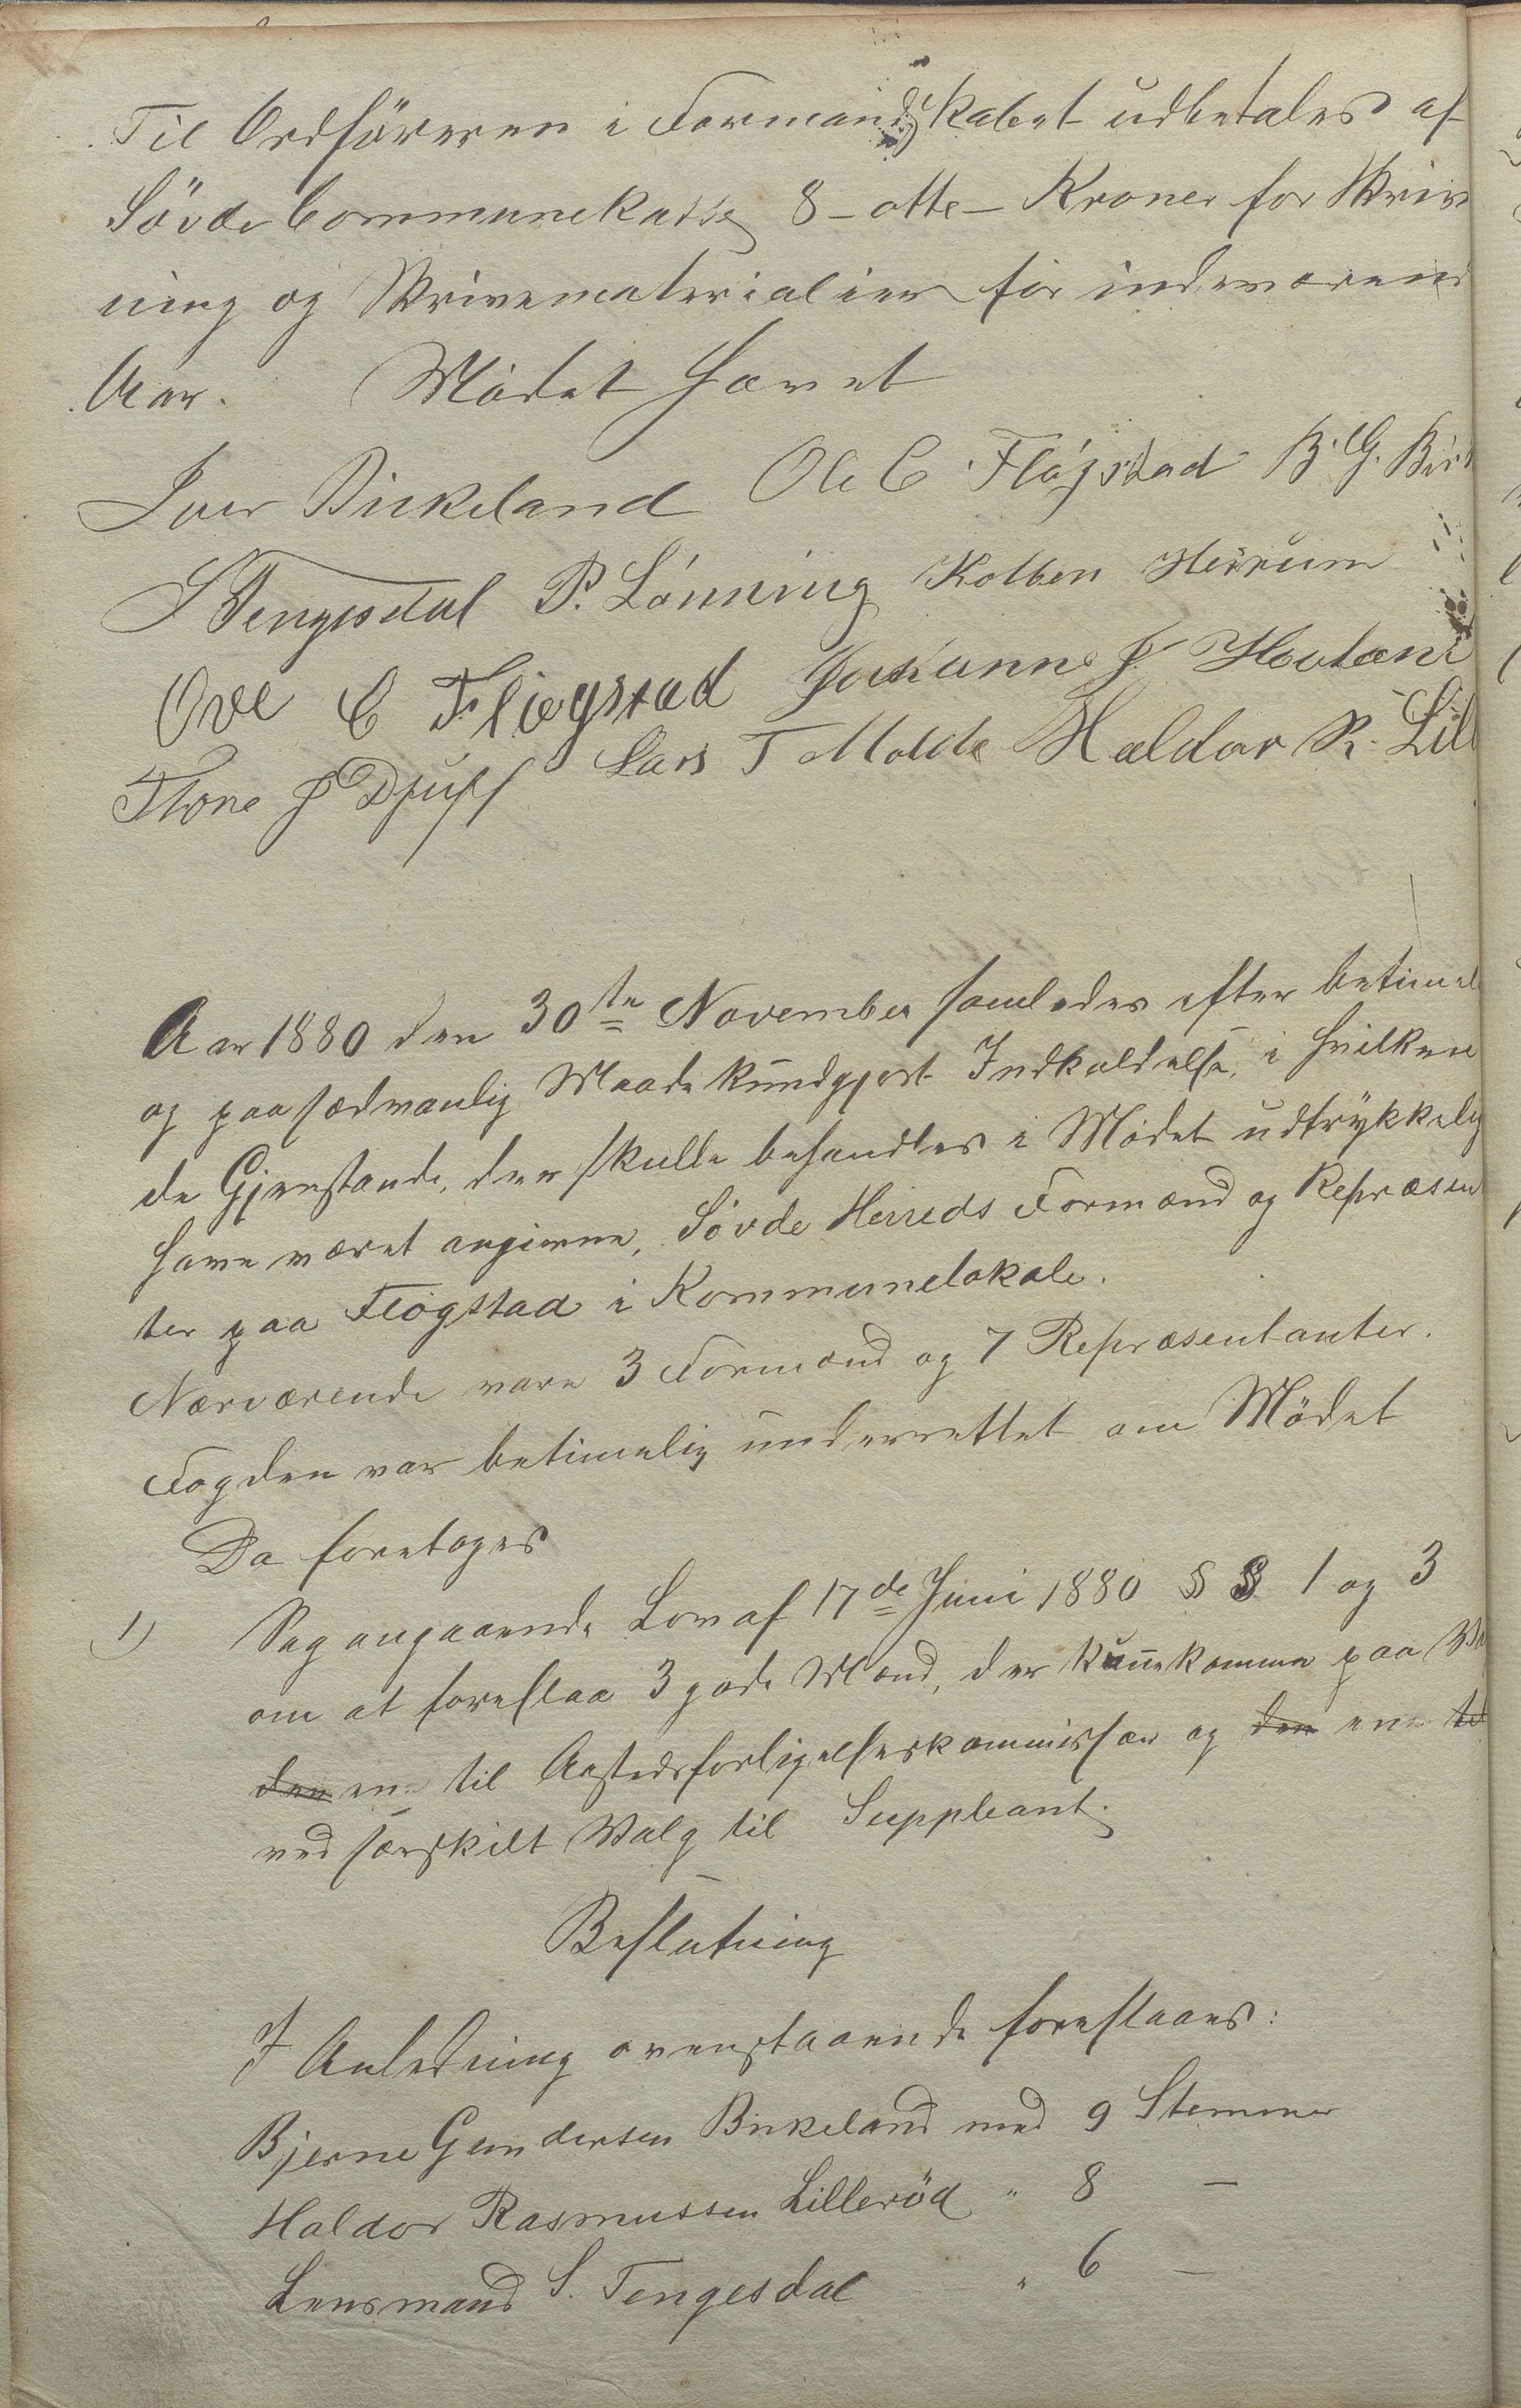 Til Ordføreren i Formandskabet udbetales af
Søvde Communekasse 8 - otte - Kroner for Skriv
ning og Skrivematerialier for indeværend
Aar. Mødet hævet
Iver Birkeland Ole C Fløgstad B. G. Birk
S Tengesdal P. Lønning Kolben Herrum
Ove C Fløgstad Johannes J. Hovland
Tore J Djuff Lars T Molde Haldor R. Lill
Aar 1880 den 30te November samledes efter betimel
og paa sædvanlig Maade kundgjort Indkaldelse, i hvilken
de Gjenstande, der skulle behandles i Mødet udtrykkelig
have været angivne, Søvde Herreds Formænd og Repræsen
ter paa Fløgstad i Kommunelokale.
Nærværende vare 3 Formænd og 7 Repræsentanter.
Fogden var betimelig underrettet om Mødet
Da foretoges
1) Sag angaaende Lov af 17de Juni 1880 § § 1 og 3
om at foreslaa 3 gode Mænd, der kunne komme paa Va
den ene til Aastedsforligelseskommissær og den ene til
ved særskilt Valg til Suppleant.
Beslutning
I Anledning ovenstaaende foreslaaes:
Bjerne Gundersen Birkeland med 9 Stemmer
Haldor Rasmussen Lillerød " 8 —
Lensmand S. Tengesdal " 6 —